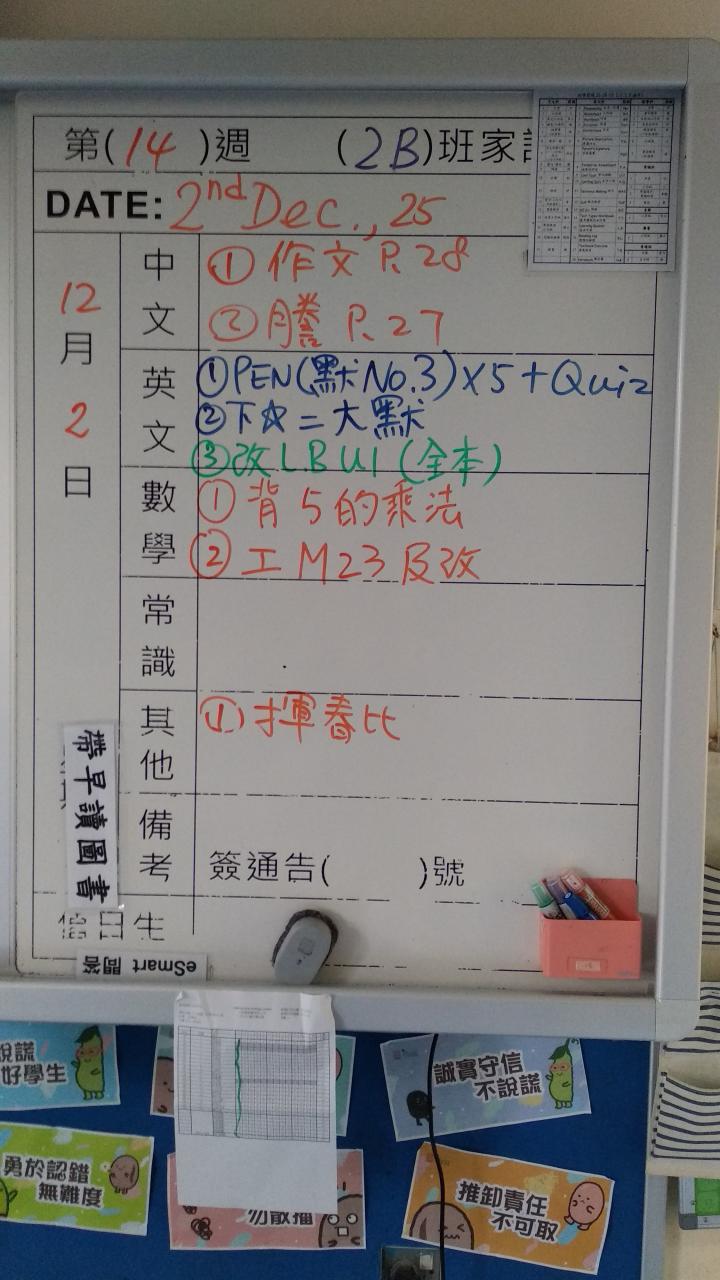 第(14)週 (2B)班家
DATE: 2nd Dec., 25
12月2日
中文
① 作文 P.28
② 謄 P.27
英文
① PEN(默No.3)X5+Quiz
② 下☆二大默
③ 改LBU1(全本)
數學
① 背5的乘法
② 工M23及改
常識
其他
① 揮春比
備考
簽通告( )號
帶早讀圖書
值日生
eSmart 問答
說謊
好學生
誠實守信
不說謊
勇於認錯
無難度
勿散播
推卸責任
不可取